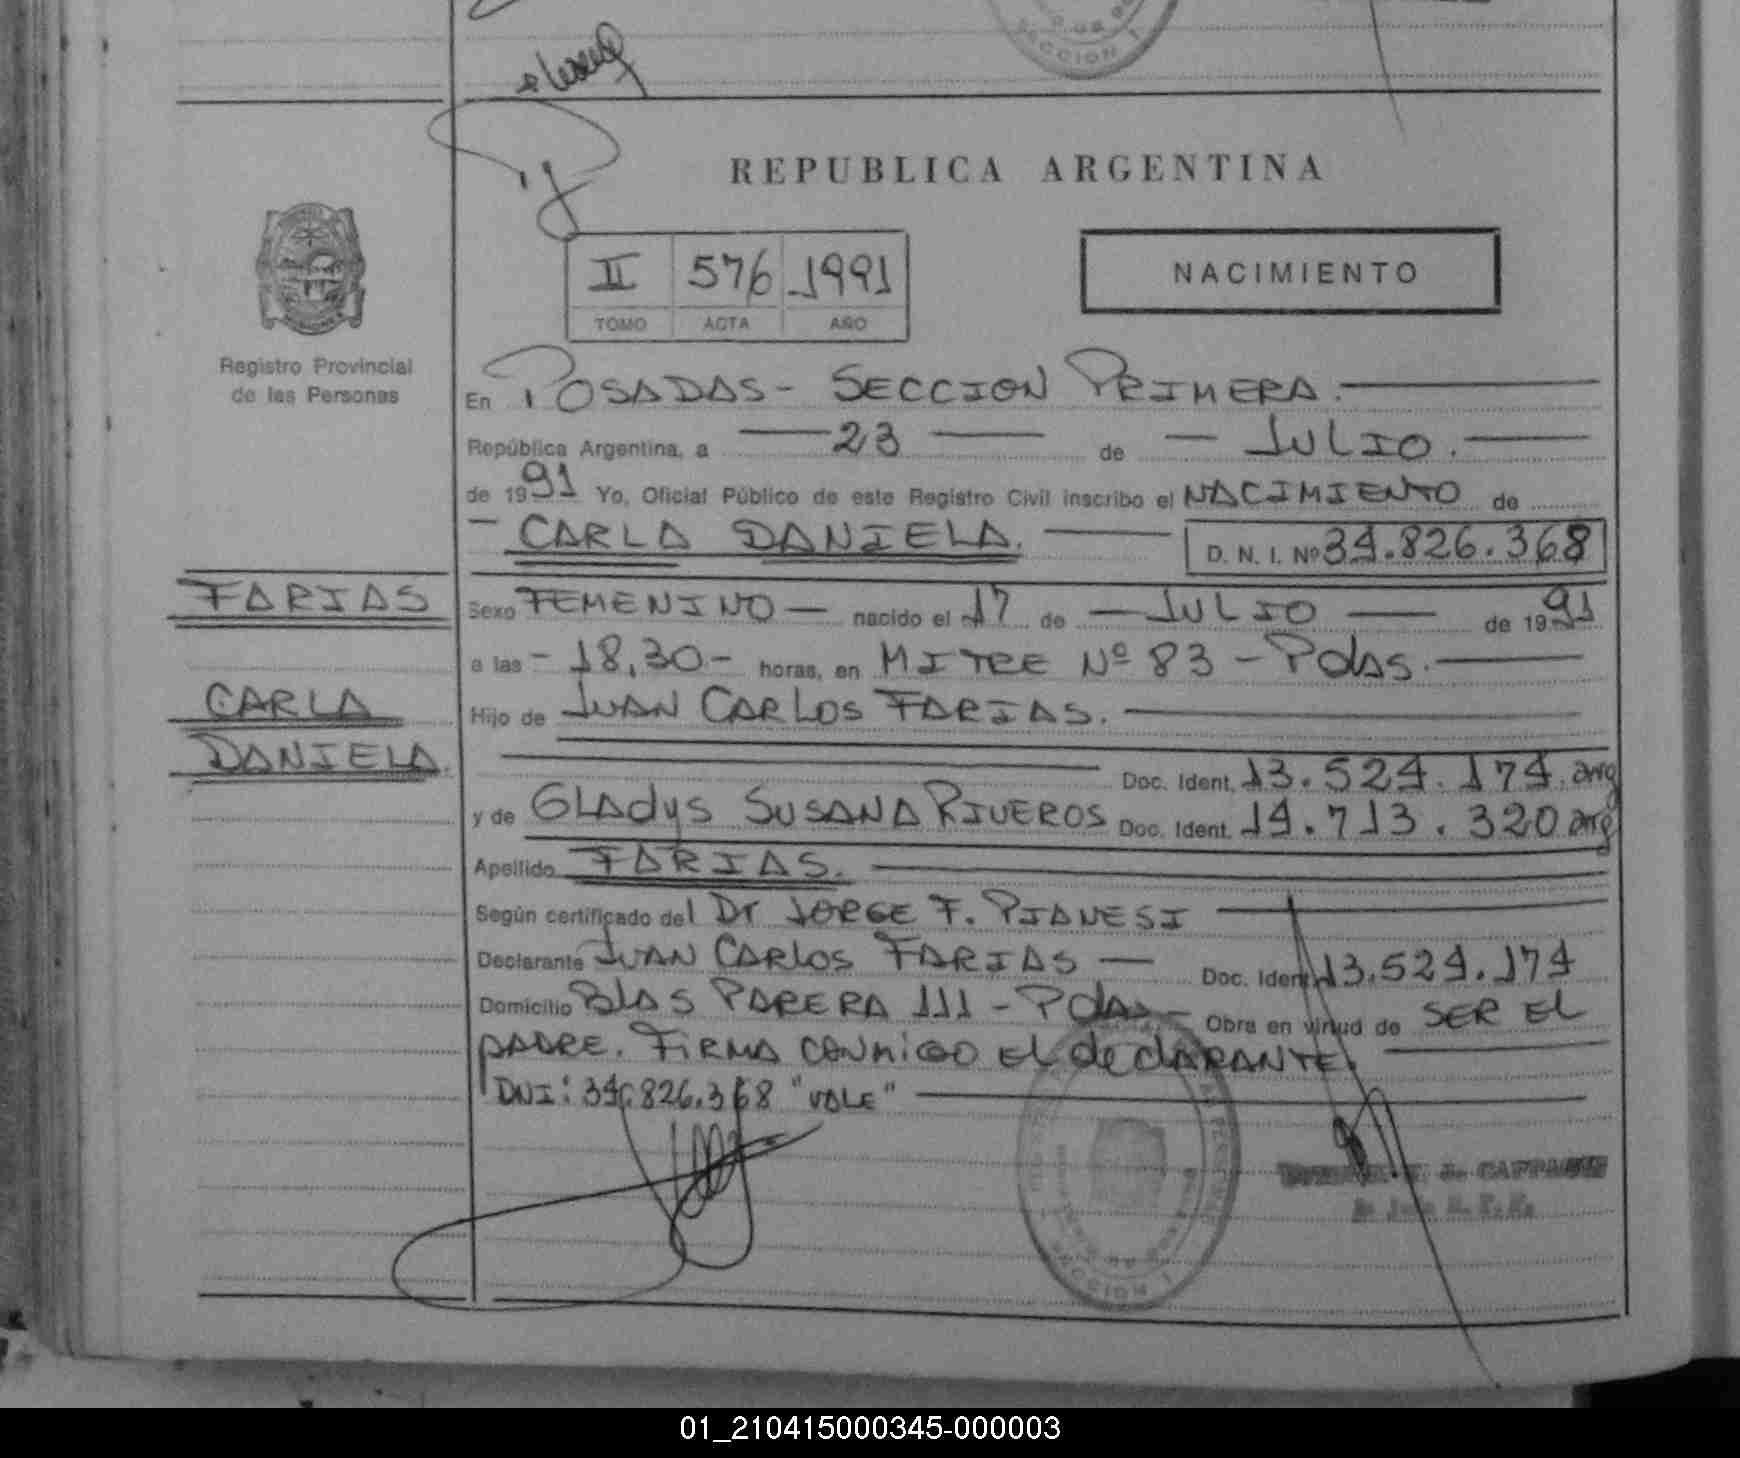 SECCION 1
REPUBLICA ARGENTINA
II 576 1991
TOMO ACTA AÑO
NACIMIENTO
Registro Provincial
de las Personas
En POSADAS - SECCION PRIMERA.
República Argentina, a 23 de JULIO.
de 1991 Yo, Oficial Público de este Registro Civil inscribo el NACIMIENTO de
CARLA DANIELA. D. N. I. Nº 34.826.368
FARIAS
CARLA
DANIELA.
Sexo FEMENINO - nacido el 17 de JULIO de 1991
a las - 18,30 - horas, en MITRE Nº 83 - Pdas.
Hijo de JUAN CARLOS FARIAS.
Doc. Ident. 13.524.174. arg
y de GLADYS SUSANA RIVEROS Doc. Ident. 14.713.320 arg
Apellido FARIAS.
Según certificado del Dr JORGE F. PIANESI
Declarante JUAN CARLOS FARIAS - Doc. Ident. 13.524.174
Domicilio BLAS PARERA 111 - Pdas - Obra en virtud de SER EL
PADRE. FIRMA CONMIGO EL DECLARANTE.
DNI: 34.826.368 "VALE"
01_210415000345-000003